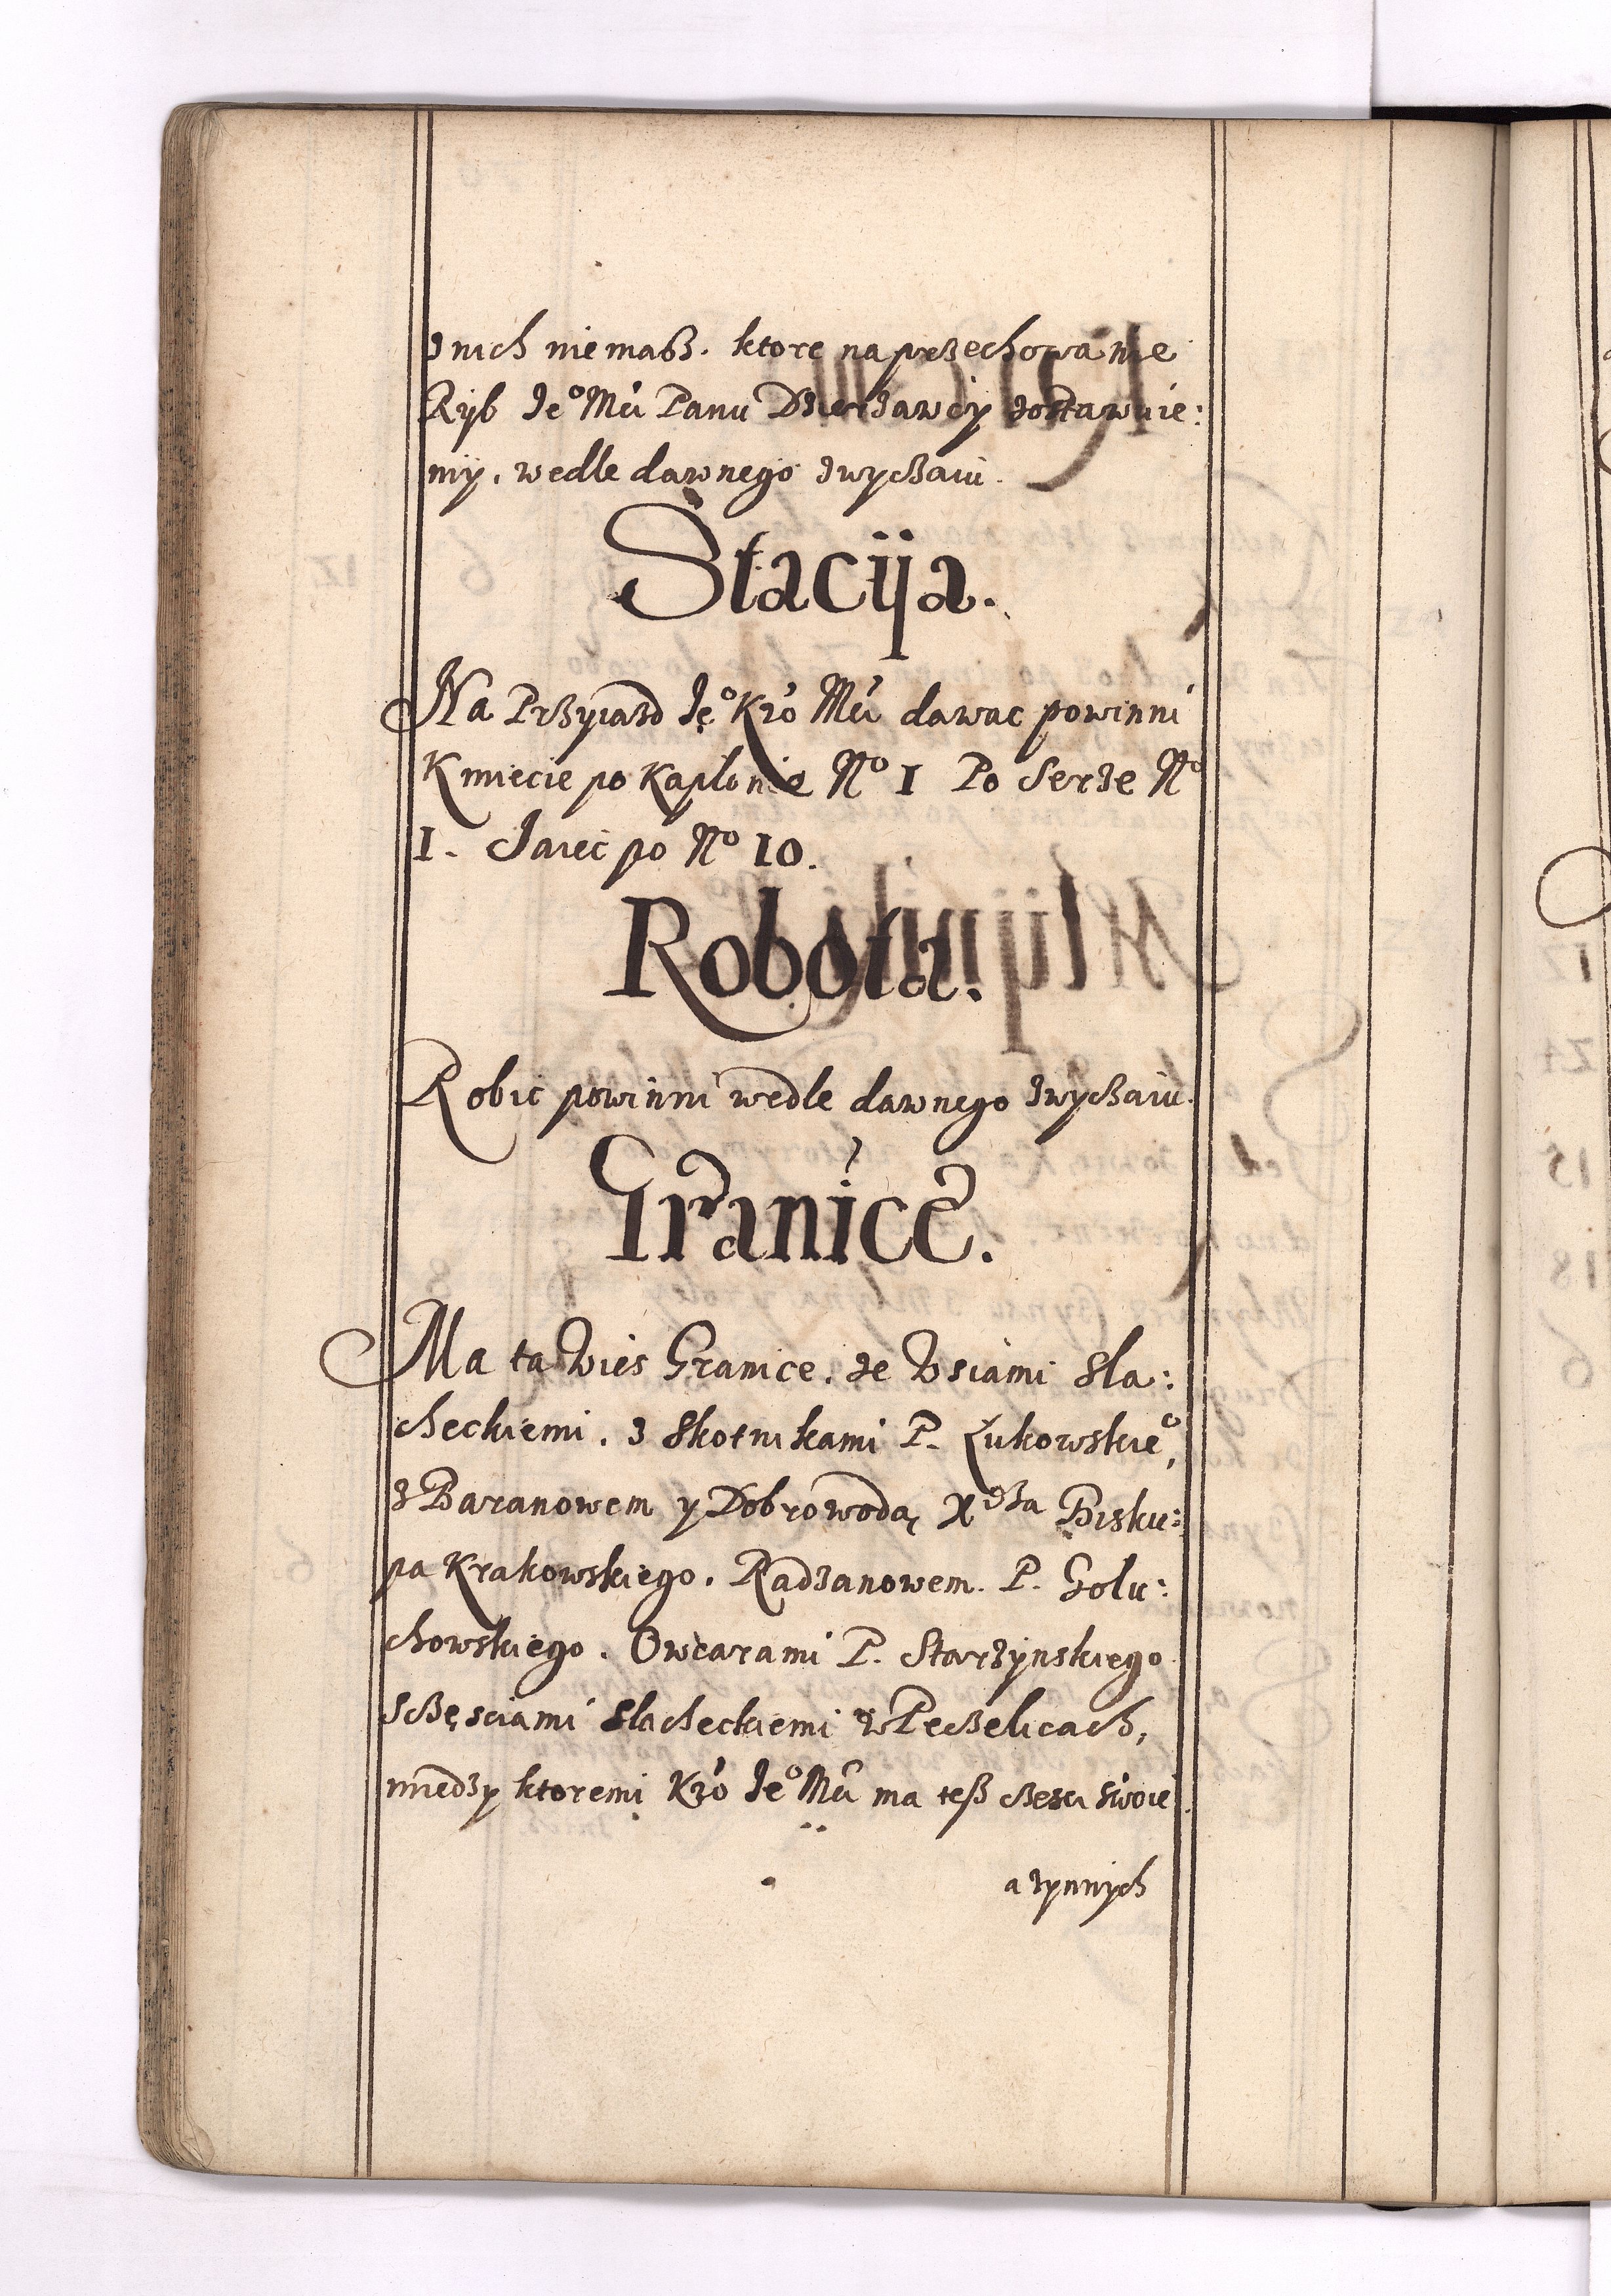 z nich niemasz. ktore na przechowanie
Ryb Je° Mći Panu Dzierżawcy zostawuie:
my, wedle dawnego zwyczaiu.
Stacija.
Na Przyiazd Je° Kró Mći dawac powinni
Kmiecie po Kapłonie N° 1 Po Serze N°
1. Jaiec po N° 10.
Robota.
Robić powinni wedle dawnego zwyczaiu.
Granice.
Ma ta Wies Granice. ze Wsiami Sla:
checkiemi. z Skotnikami P. Łukowskie°,
z Baranowem y Dobrowodą X dza Bisku:
pa Krakowskiego. Radzanowem. P. Golu:
chowskiego. Owczarami P. Starzynskiego
z Częsciami Slacheckiemi w Peczelicach,
miedzy ktoremi Kró Je° Mći ma tesz częsci swoie
a z ynnych